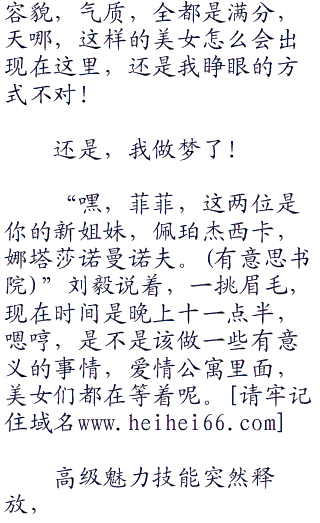 容貌，气质，全都是满分，
天哪，这样的美女怎么会出
现在这里，还是我睁眼的方
式不对！
还是，我做梦了！
“嘿，菲菲，这两位是
你的新姐妹，佩珀杰西卡，
娜塔莎诺曼诺夫。(有意思书
院)”刘毅说着，一挑眉毛，
现在时间是晚上十一点半，
嗯哼，是不是该做一些有意
义的事情，爱情公寓里面，
美女们都在等着呢。[请牢记
住域名www.heihei66.com]
高级魅力技能突然释
放，